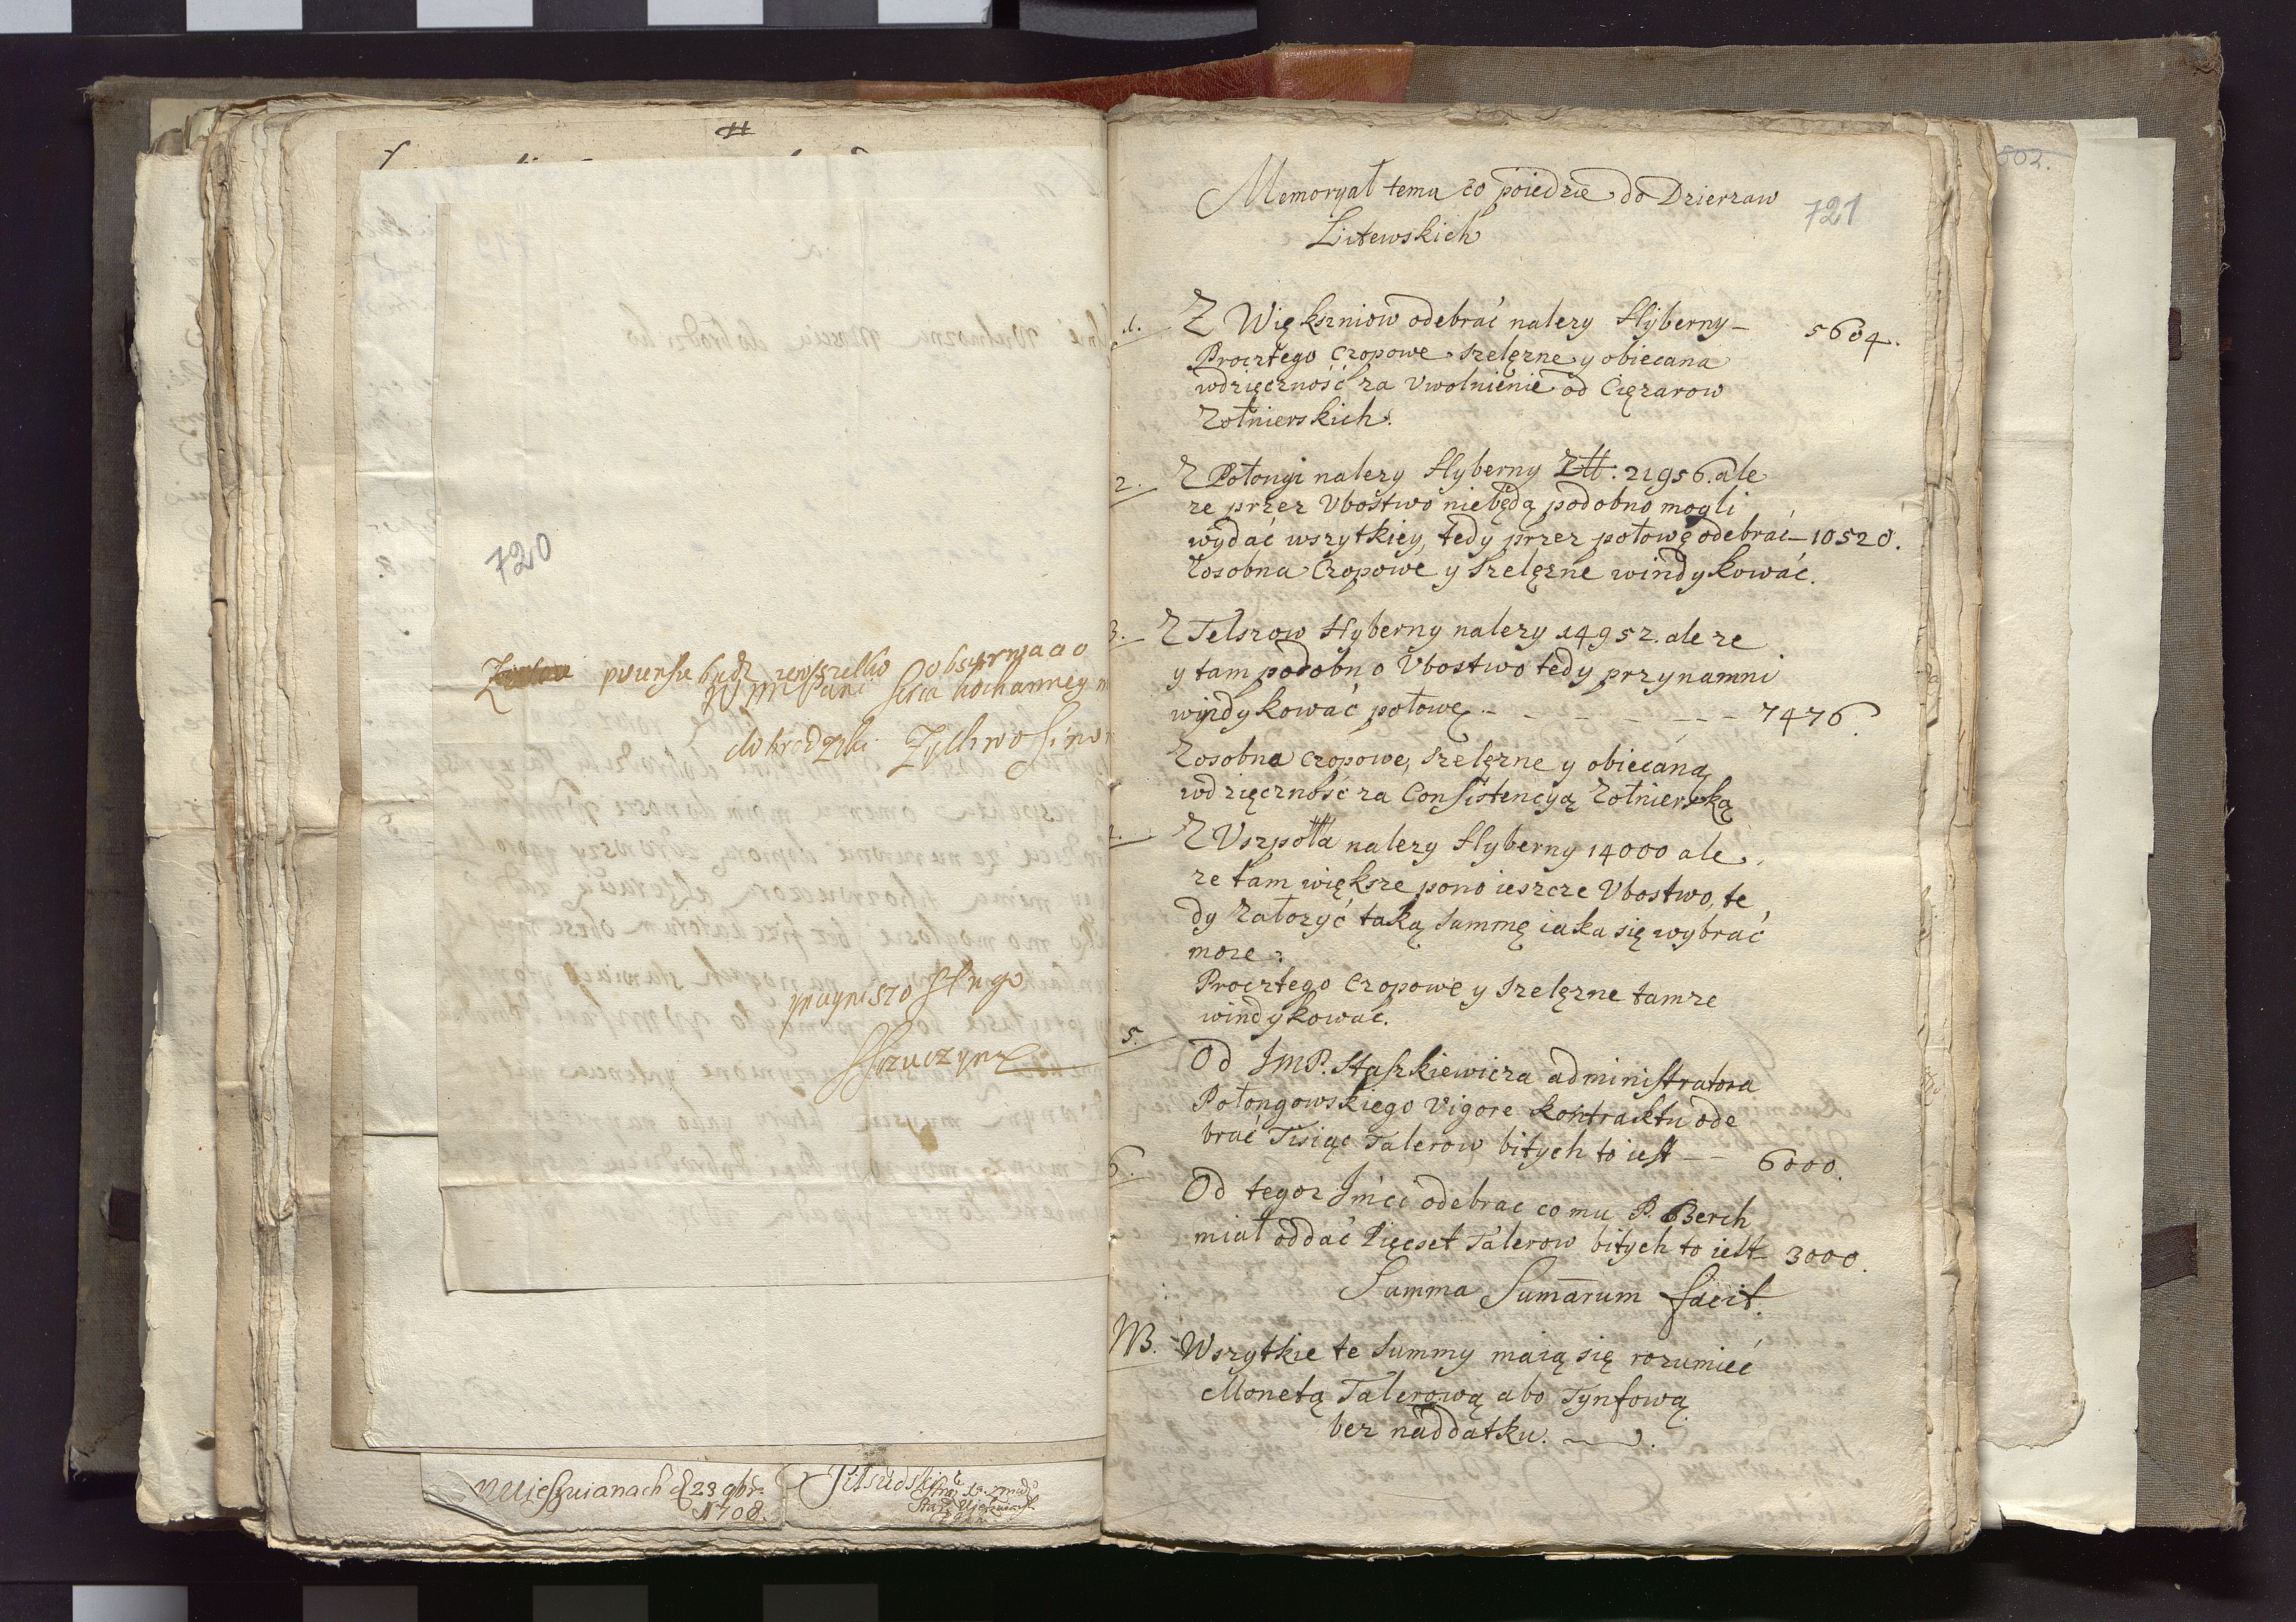 720
powinsze bydz
W M Pani
dobrodzki Zyklwo
nayniszo sługo
d 23 9br.
1708.
721
Memoryał temu co poiedzie do Dzierzaw
Litewskich
1. Z Większniow odebrać nalezy Hyberny – 5604.
Procztego Czopowe Szelęzne y obiecana
wdzięczność za Uwolnienie od Cięzarow
Zołnierskich.
2. Z Połongi nalezy Hyberny Złł. 21956. ale
ze przez Ubostwo niebędą podobno mogli
wydać wszytkiey, tedy przez połowę odebrać – 10520.
Zosobna Czopowe y Szelęzne windykować.
3. Z Telszow Hyberny nalezy 14952. ale ze
y tam podobno Ubostwo tedy przynamni
windykować połowę – – – – – – 7476
Zosobna Czopowe, Szelęzne y obiecaną
wdzięczność za Consistencyą Zołnierską
4. Z Uszpolla nalezy Hyberny 14000 ale
ze tam większe pono ieszcze Ubostwo, te
dy Załozyć taką Summę iaka się wybrać
moze.
Procztego Czopowe y Szelęzne tamze
windykować.
5. Od JmP. Staszkiewicza administratora
Połongowskiego Vigore kontraktu ode
brać Tisiąc Talerow bitych to iest – – 6000.
6. Od tegoz Jmći odebrac co mu P. Berch
miał oddać Pięcset Talerow bitych to iest – 3000.
Summa Sum̄arum facit.
NB. Wszytkie te Summy maią się rozumieć
Monetą Talerową abo Tynfową
bez naddatku.
502.